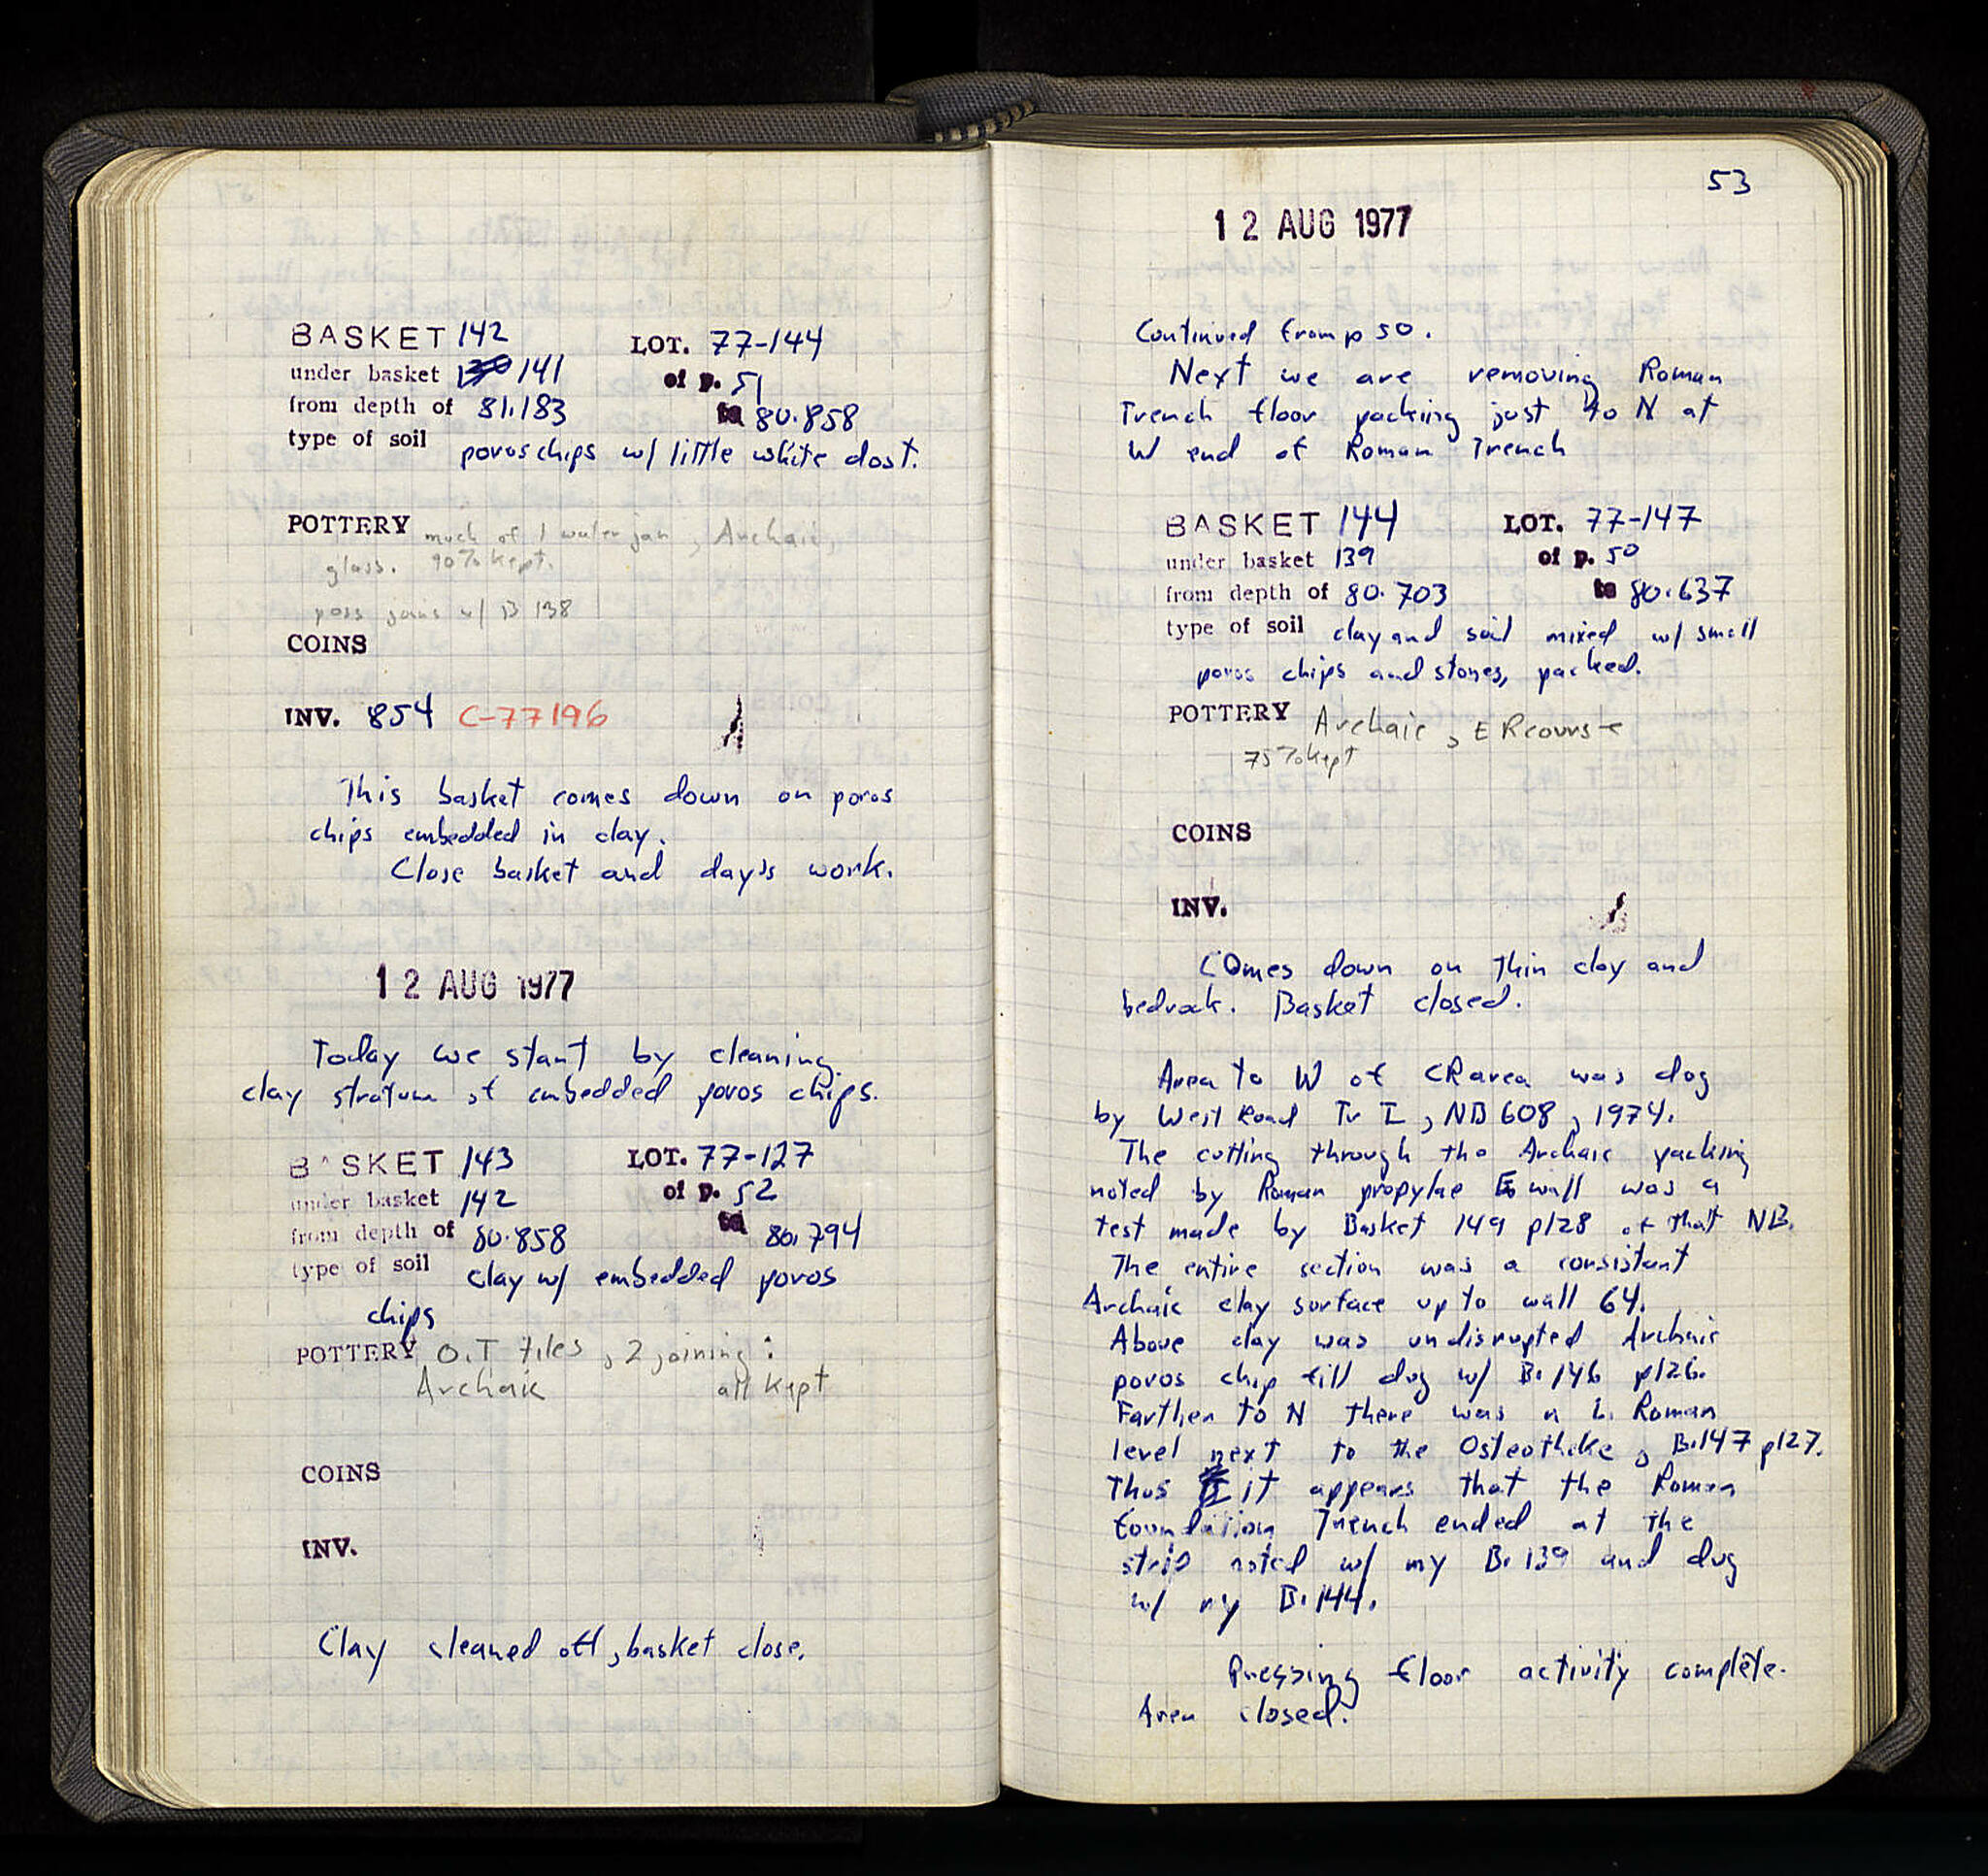 BASKET 142 LOT. 77-144
under basket 141 of p. 51
from depth of 81.183 to 80.858
type of soil poros chips w/ little white dust.
POTTERY much of 1 water jar, Archaic,
glass. 90% kept.
poss joins w/ B 138
COINS
INV. 854 C-77 196
This basket comes down on poros
chips embedded in clay.
Close basket and day's work.
12 AUG 1977
Today we start by cleaning
clay stratum of embedded poros chips.
BASKET 143 LOT. 77-127
under basket 142 of p. 52
from depth of 80.858 to 80.794
type of soil clay w/ embedded poros
chips
POTTERY O.T tiles, 2 joining:
Archaic all kept
COINS
INV.
Clay cleaned off, basket close.
53
12 AUG 1977
Continued from p 50.
Next we are removing Roman
Trench floor packing just to N at
W end of Roman Trench
BASKET 144 LOT. 77-147
under basket 139 of p. 50
from depth of 80.703 to 80.637
type of soil clay and soil mixed w/ small
poros chips and stones, packed.
POTTERY Archaic, ER course
75% kept
COINS
INV.
Comes down on thin clay and
bedrock. Basket closed.
Area to W of CR area was dug
by West Road Tr I, NB 608, 1974.
The cutting through the Archaic packing
noted by Roman propylae E wall was a
test made by Basket 149 p128 of that NB.
The entire section was a consistant
Archaic clay surface up to wall 64.
Above clay was undisrupted Archaic
poros chip fill dug w/ B. 146 p126.
Farther to N there was a L. Roman
level next to the Osteotheke, B.147 p127.
Thus it appears that the Roman
foundation Trench ended at the
strip noted w/ my B. 139 and dug
w/ my B. 144.
Pressing floor activity complete.
Area closed.